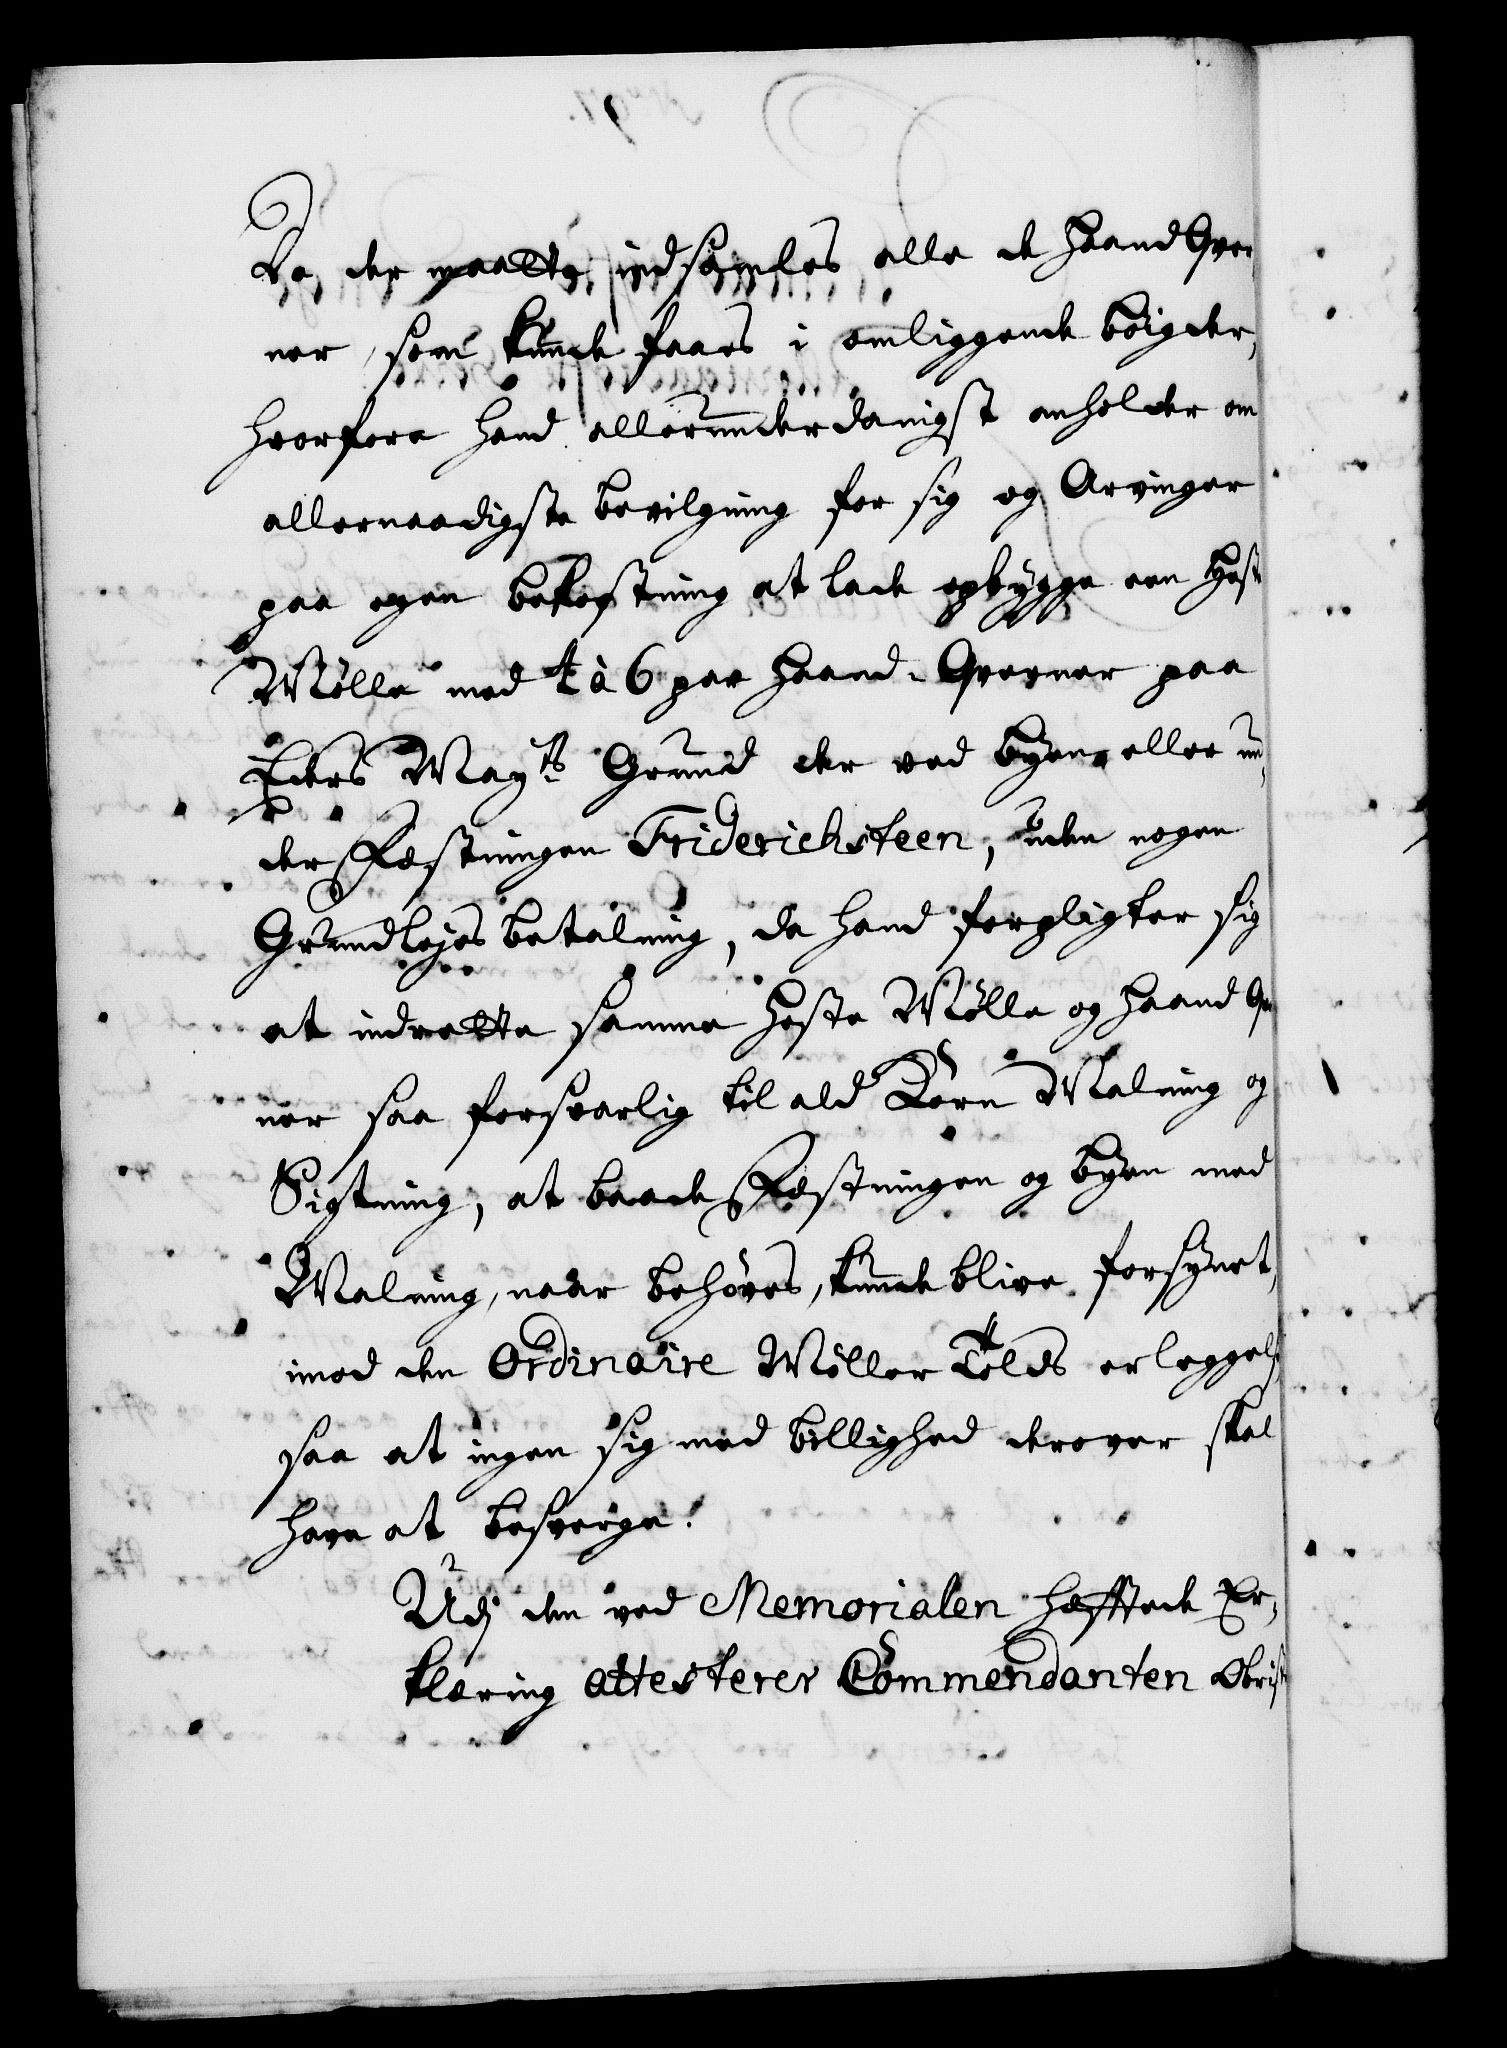 Da der maatte indsamles alle de Haand Qver
ner, som kunde faaes i omliggende bøigder,
hvorfore hand allerunderdanigst anholder om
allernaadigste bevilgning for sig og Arvinger
paa egen bekostning at lade opbygge een Heste
Mølle med 4 à 6 par Haand-Qverner paa
Eders May:ts Grund der ved byen eller un,
der Fæstningen Friderichsteen, uden nogen
Grundlejes betalning, da hand forpligter sig
at indrette samme Heste Mølle og Haand Qver
ner saa forsvarlig til ald Korn Malning og
Sigtning, at baade Fæstningen og byen med
Malning, naar behøves, kunde blive forsynet,
imod den Ordinaire Møller Tolds erleggelse
saa at ingen sig med billighed derover skal
have at besverge.
Udj den ved Memorialen hefftede Er,
klæring attesterer Commendanten Obrist